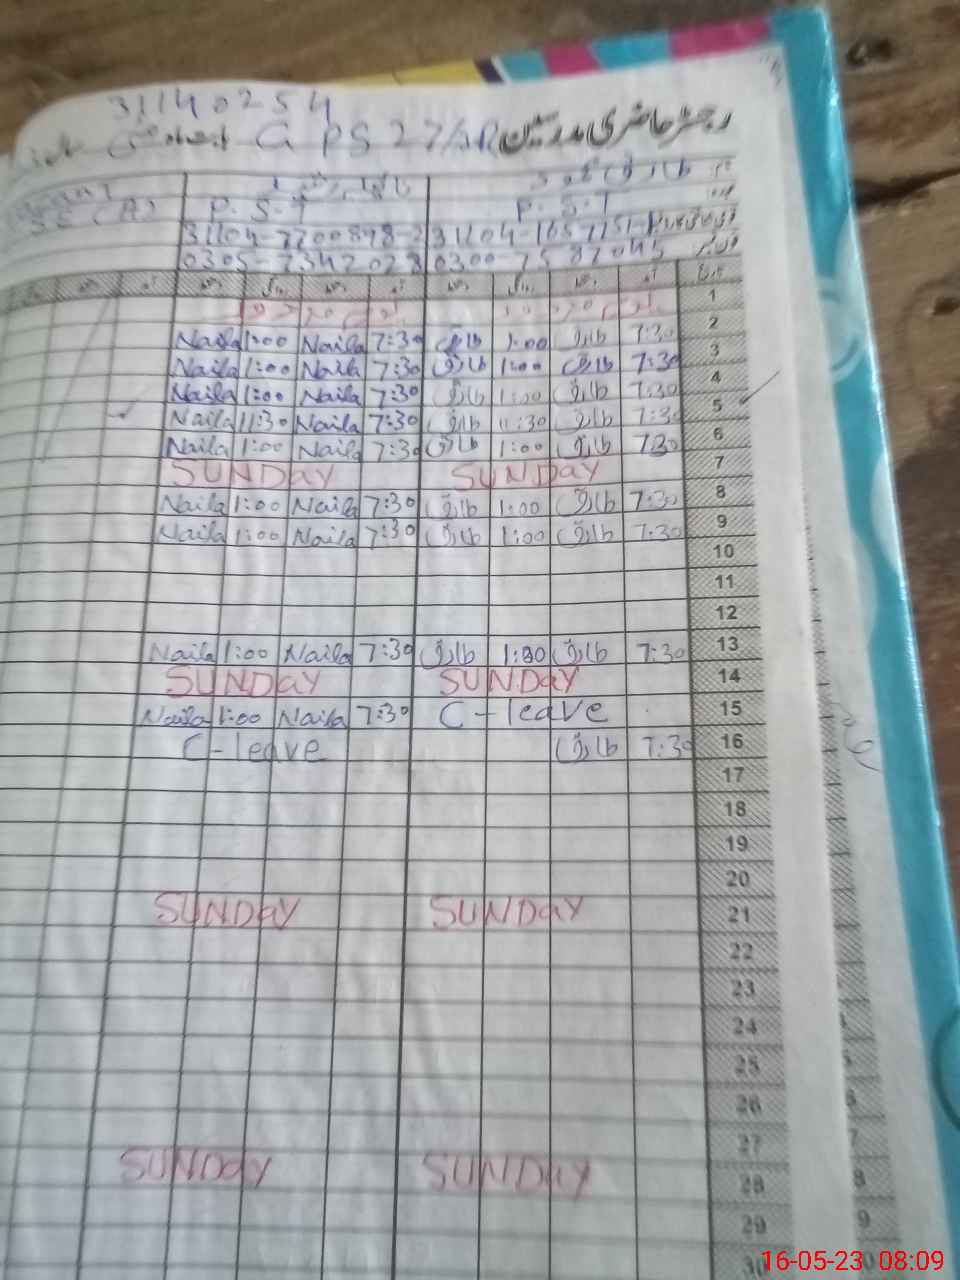 31140254
رجسٹر حاضری مدرسین G PS 27/A.R
طارق
P.S.T P.S.T
31104-1657751-1 31104-7700898-2
0300-7587045 0305-7342028
تاریخ آمد دستخط روانگی دستخط آمد دستخط روانگی دستخط
1
2 7:30 طارق 1:00 طارق 7:30 Naila 1:00 Naila
3 7:30 طارق 1:00 طارق 7:30 Naila 1:00 Naila
4 7:30 طارق 1:00 طارق 7:30 Naila 1:00 Naila
5 7:30 طارق 11:30 طارق 7:30 Naila 11:30 Naila
6 7:30 طارق 1:00 طارق 7:30 Naila 1:00 Naila
7 SUNDAY SUNDAY
8 7:30 طارق 1:00 طارق 7:30 Naila 1:00 Naila
9 7:30 طارق 1:00 طارق 7:30 Naila 1:00 Naila
10
11
12
13 7:30 طارق 1:00 طارق 7:30 Naila 1:00 Naila
14 SUNDAY SUNDAY
15 C-leave 7:30 Naila 1:00 Naila
16 7:30 طارق C-leave
17
18
19
20
21 SUNDAY SUNDAY
22
23
24
25
26
27
28 SUNDAY SUNDAY
29
30
16-05-23 08:09